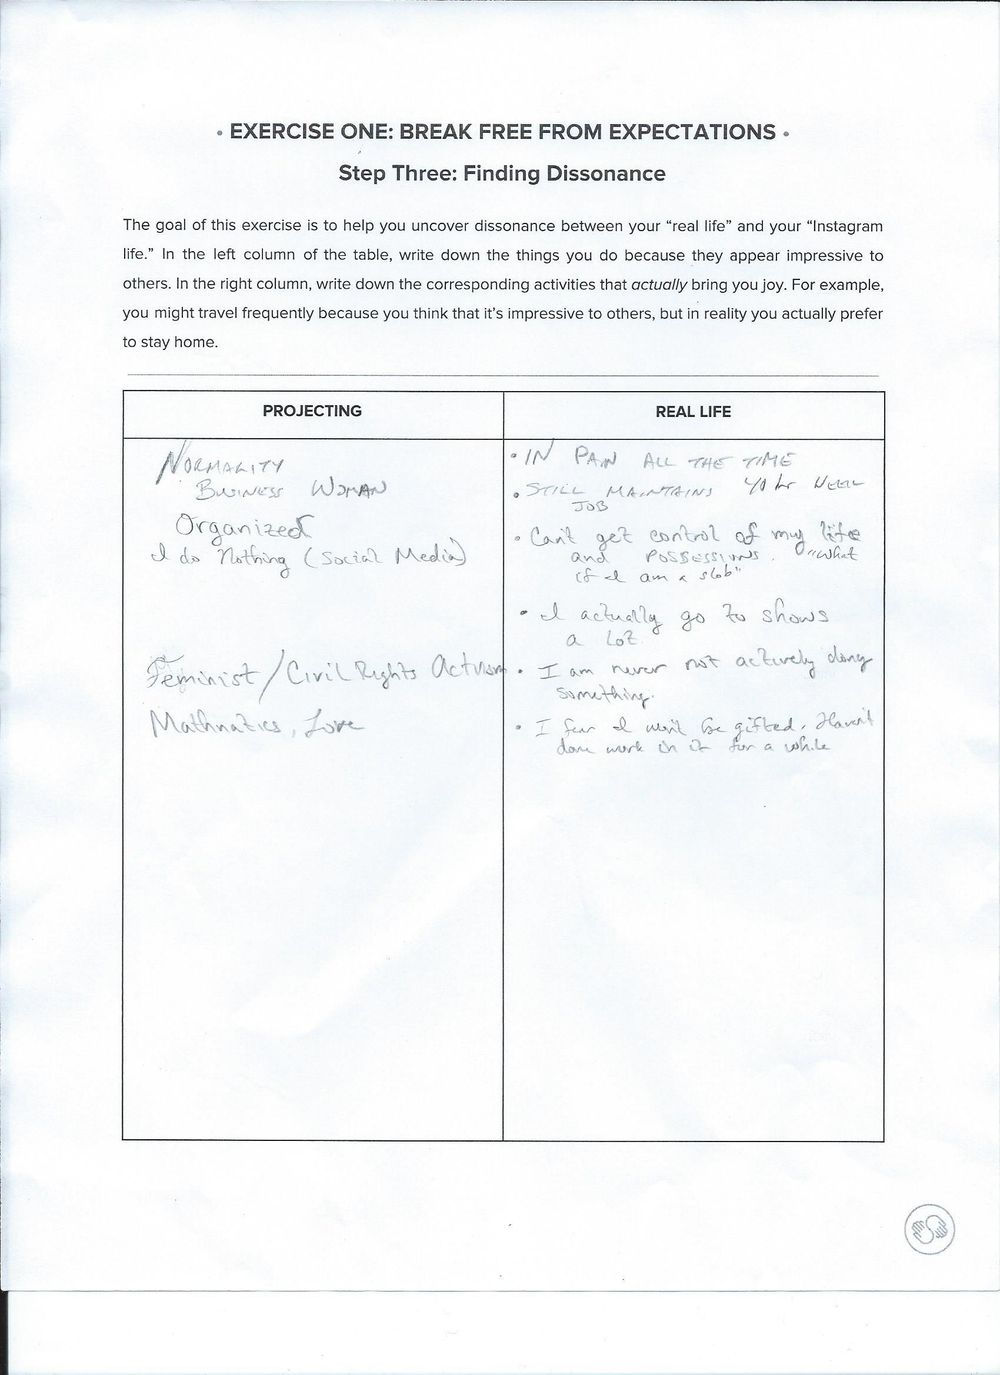 • EXERCISE ONE: BREAK FREE FROM EXPECTATIONS •
Step Three: Finding Dissonance
The goal of this exercise is to help you uncover dissonance between your “real life” and your “Instagram
life.” In the left column of the table, write down the things you do because they appear impressive to
others. In the right column, write down the corresponding activities that actually bring you joy. For example,
you might travel frequently because you think that it’s impressive to others, but in reality you actually prefer
to stay home.
PROJECTING
NORMALITY
BUSINESS WOMAN
Organized
I do Nothing (Social Media)
Feminist/Civil Rights Activism
Mathmatics, Love
REAL LIFE
• IN PAIN ALL THE TIME
• STILL MAINTAINS 40 hr WEEK
JOB
• Can't get control of my life
and POSSESSIONS. "what
if I am a slob"
• I actually go to shows
a lot.
• I am never not actively doing
something.
• I fear I won't be gifted. Haven't
done work in it for a while